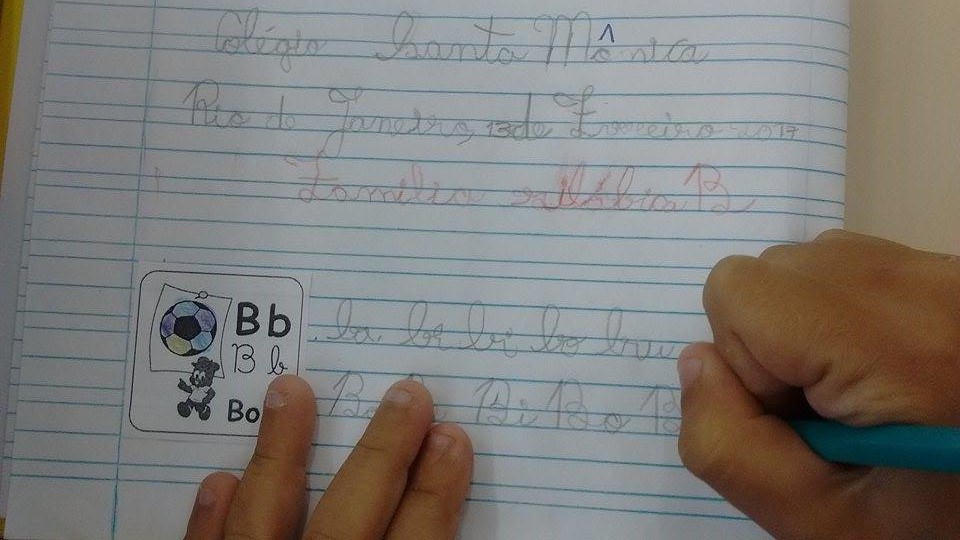 Colégio Santa Mônica
Rio de Janeiro, 13 de Fevereiro 2017
Família silábica B
Bb
B b
Bo
ba be bi bo bu
Ba Bi Bo B